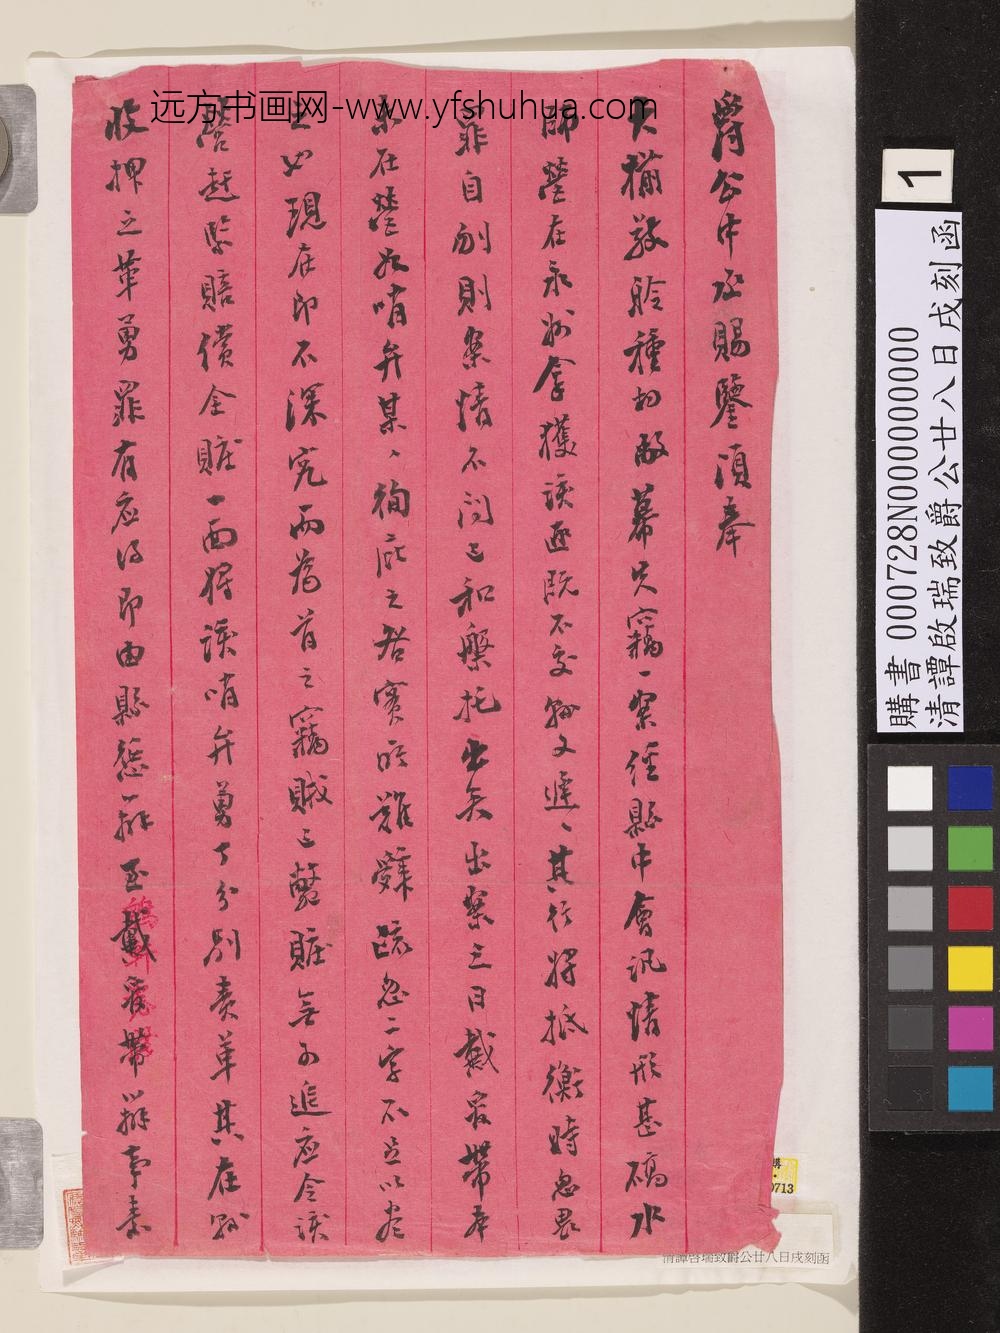 远方书画网-www.yfshuhua.com
爵公中丞賜鑒頃奉
大橷敬聆種切敝幕失竊一案經縣中會訊情形甚確水
師營在永州拿獲該匪既不交縣又遲〻其行將抵衡時忽畏
罪自刎則案情不問已和盤托出矣出案三日戴宿帶本
不在營如哨弁某〻徇庇之咎實所難辭疏忽二字不足以盡
之也現在即不深究而為首之竊賊已斃贓無可追應令該
營起緊賠償全贓一面將該哨弁勇丁分別責革其在縣
收押之革勇罪有應得即由縣懲辦至戴宿帶辦事素
購書 000728N000000000
清譚啟瑞致爵公廿八日戌刻函
1
清譚啓瑞致爵公廿八日戌刻函
購
0713